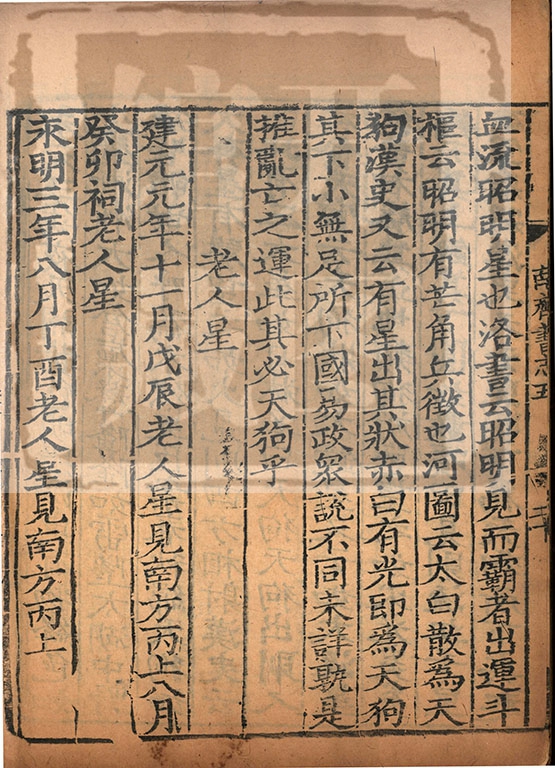 血流昭明星也洛書云昭明見而霸者出運斗
樞云昭明有芒角兵徵也河圖云太白散爲天
狗漢史又云有星出其狀赤白有光即爲天狗
其下小無足所下國易政衆說不同未詳孰是
推亂亡之運此其必天狗乎
老人星
建元元年十一月戊辰老人星見南方丙上八月
癸卯祠老人星
永明三年八月丁酉老人星見南方丙上
南齊書志五